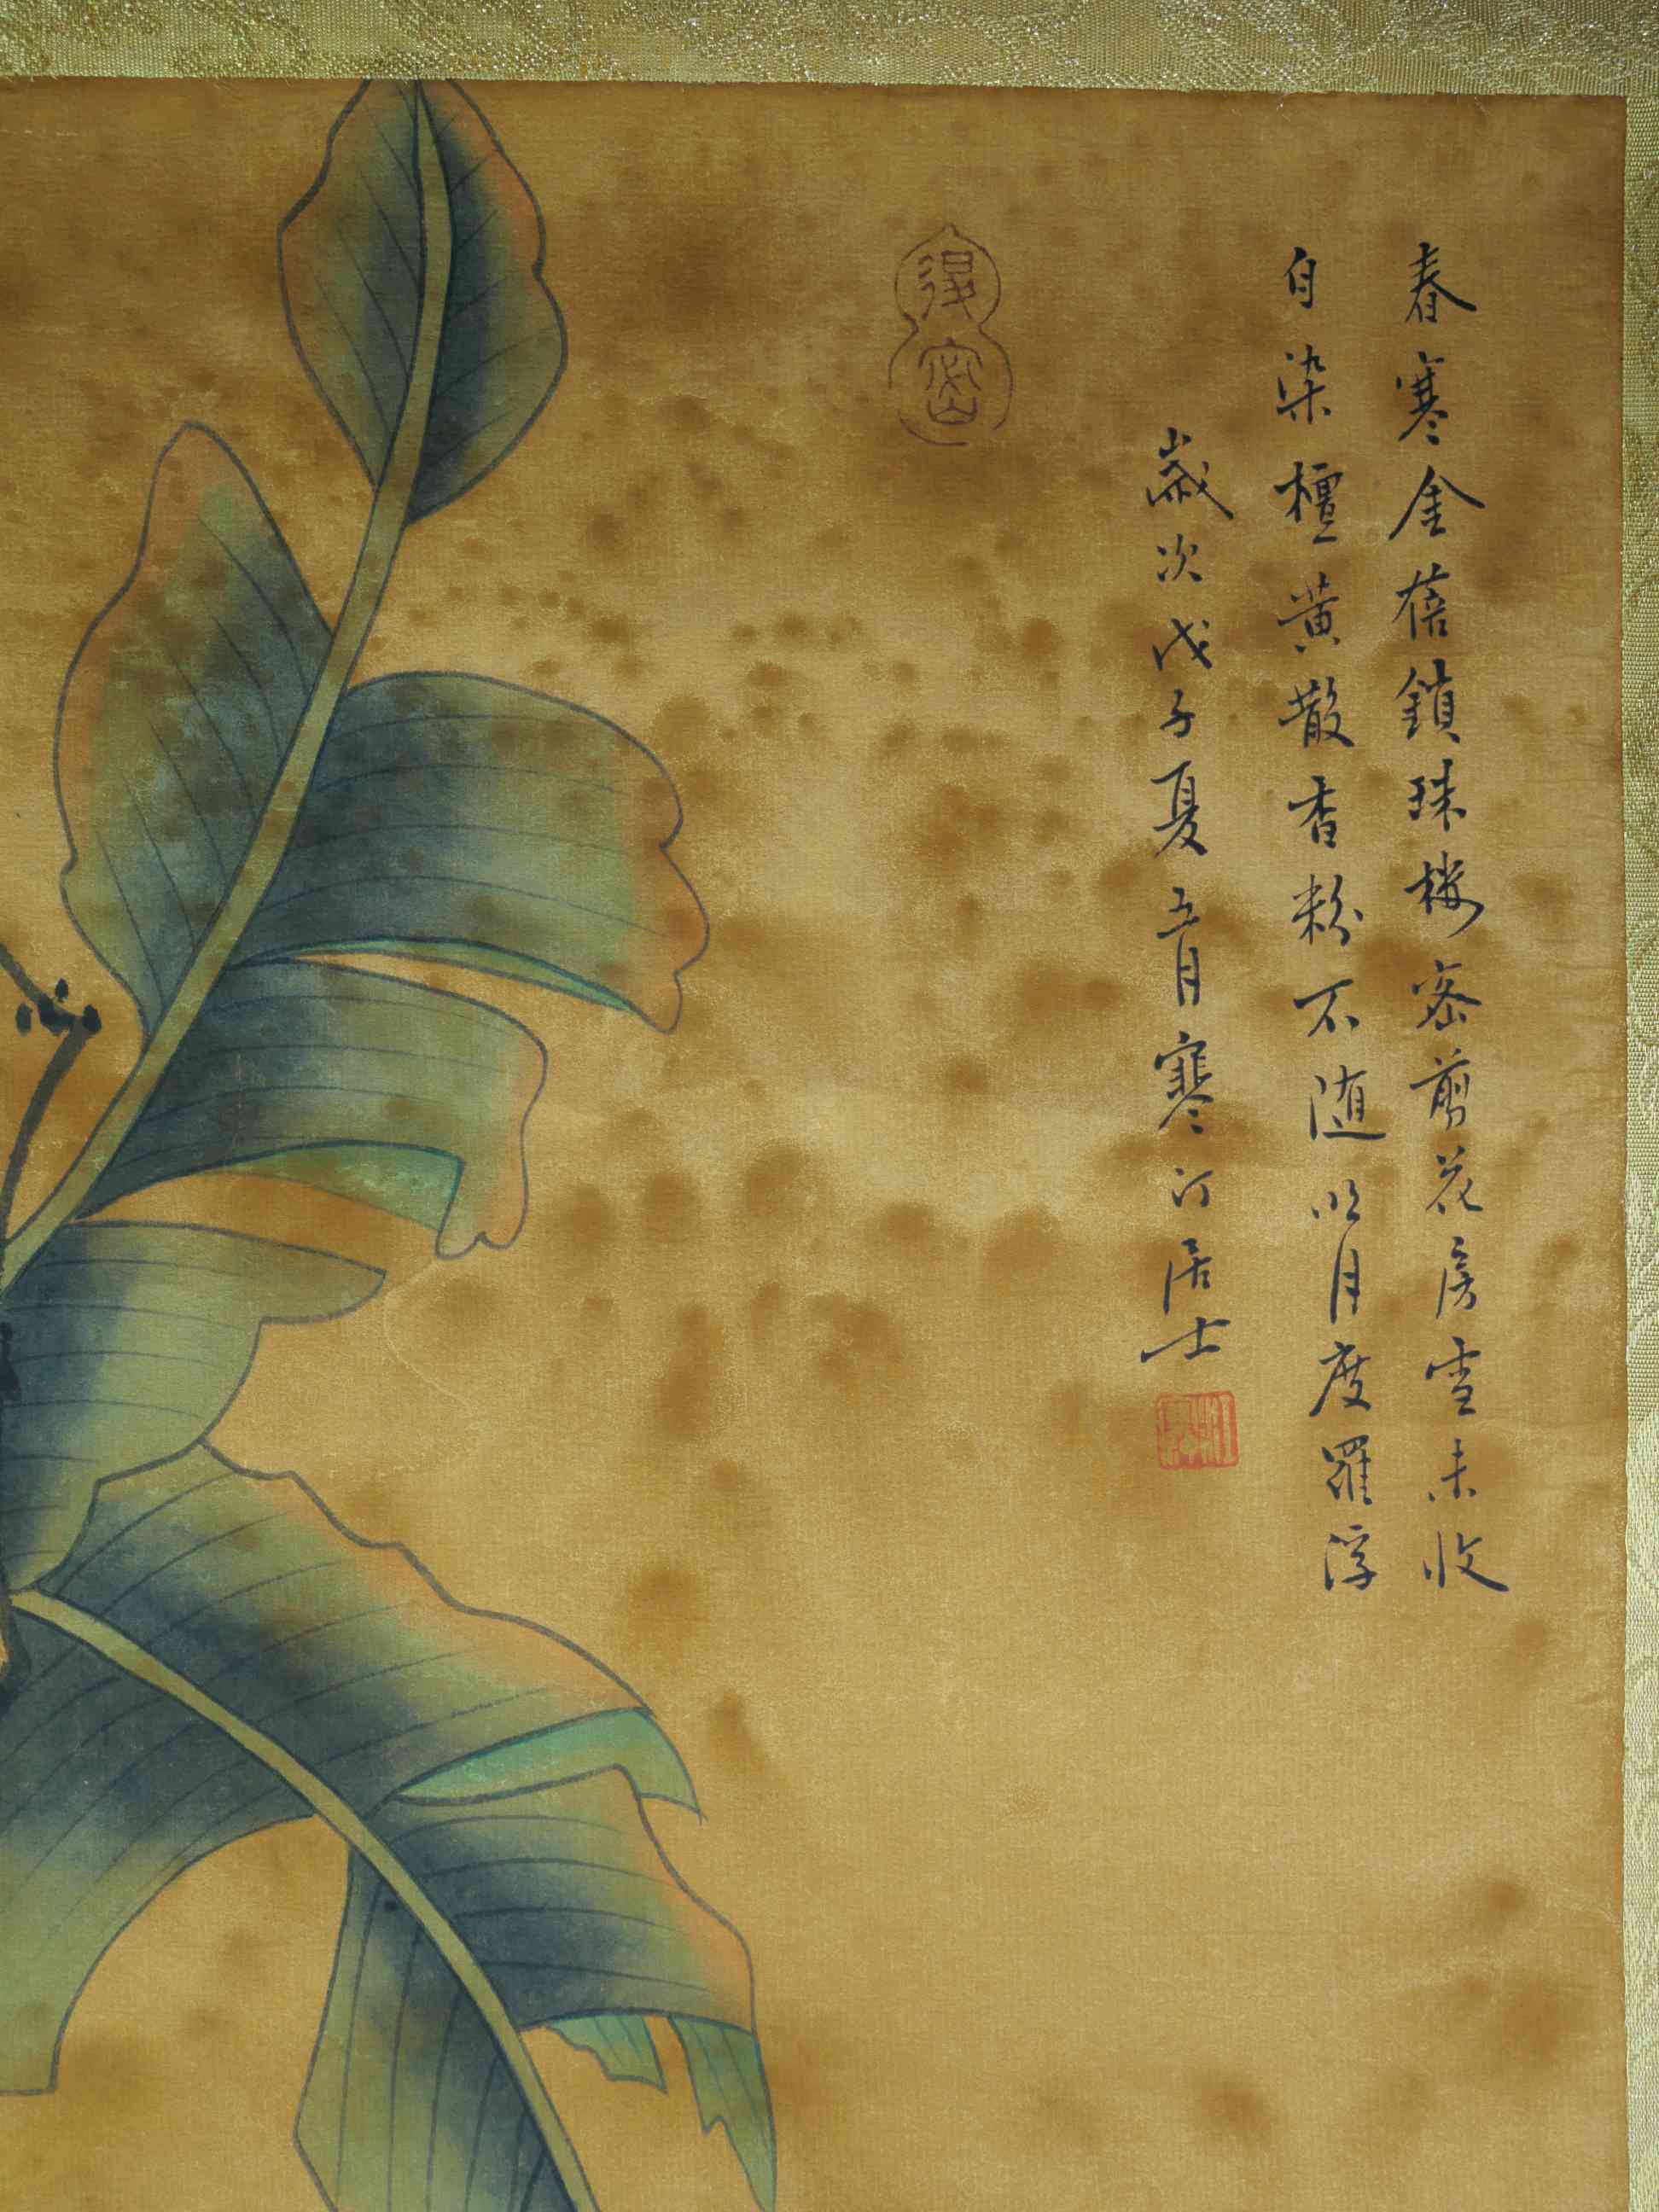 春寒金蓓鎖珠楼密剪花房雪未收
自染檀黄散香粉不随明月度羅浮
歲次戊子夏五月寒汀居士